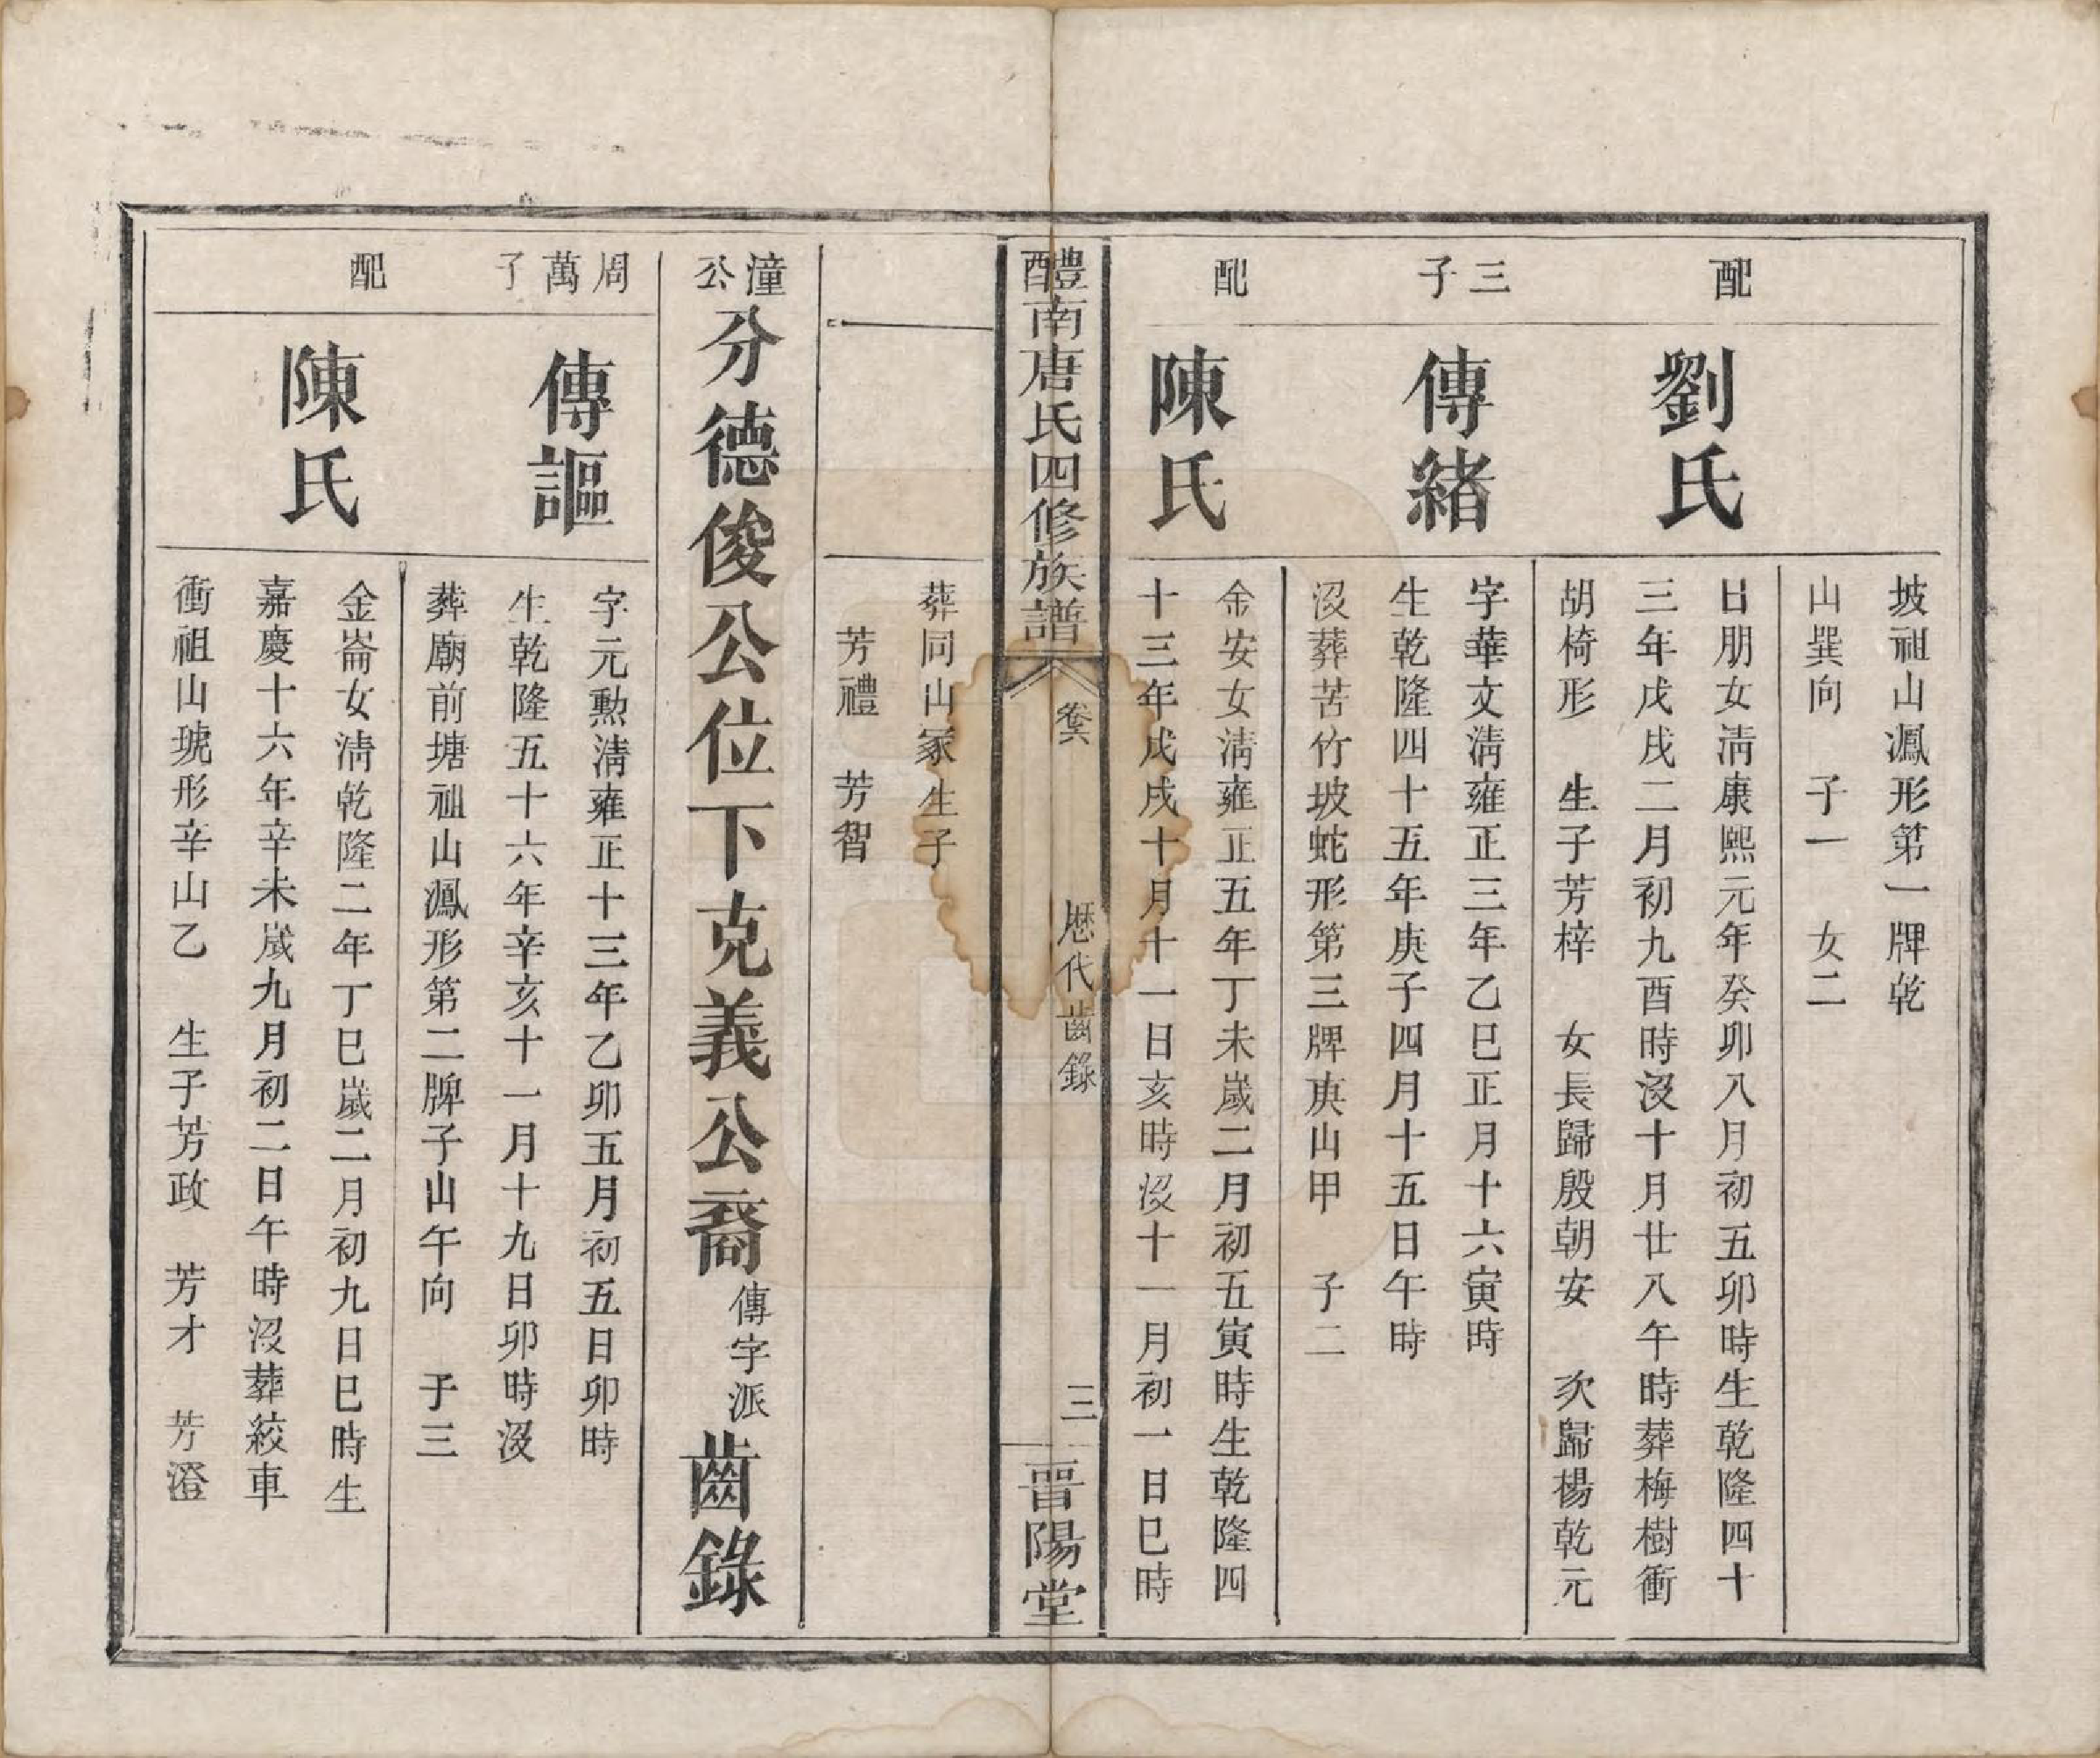 坡祖山鳳形第一牌乾
山巽向　子一　女二
配
劉氏
日朋女淸康熙元年癸卯八月初五卯時生乾隆四十
三年戊戌二月初九酉時沒十月廿八午時葬梅樹衝
胡椅形　生子芳梓　女長歸殷朝安　次歸楊乾元
三子
傳緒
字華文淸雍正三年乙巳正月十六寅時
生乾隆四十五年庚子四月十五日午時
沒葬苦竹坡蛇形第三牌庚山甲　子二
配
陳氏
金安女淸雍正五年丁未歲二月初五寅時生乾隆四
十三年戊戌十月十一日亥時沒十一月初一日巳時
醴南唐氏四修族譜
卷六
歷代齒錄
三
晋陽堂
葬同山冢生子
芳禮　芳智
潼公分德俊公位下克義公裔傳字派齒錄
周萬子
傳謳
字元勲淸雍正十三年乙卯五月初五日卯時
生乾隆五十六年辛亥十一月十九日卯時沒
葬廟前塘祖山鳳形第二牌子山午向　子三
配
陳氏
金崙女淸乾隆二年丁巳歲二月初九日巳時生
嘉慶十六年辛未歲九月初二日午時沒葬絞車
衝祖山琥形辛山乙　生子芳政　芳才　芳澄